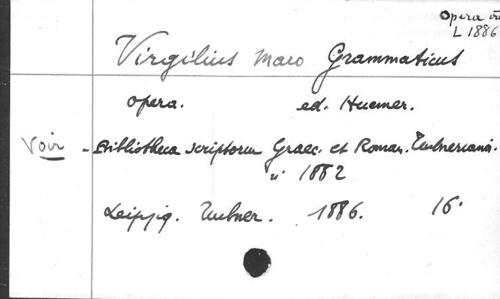 Opera
L 1886
Virgilius Maro Grammaticus
Opera. ed. Huemer.
Voir - Bibliotheca scriptorum Graec. et Roman. Teubneriana.
1882
Leipzig. Teubner. 1886. 16°